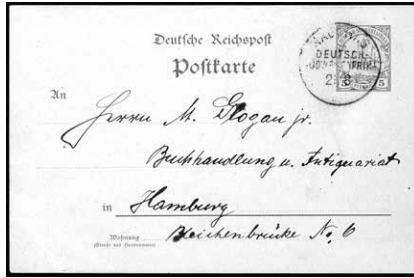 Deutsche Reichspost
Postkarte
DEUTSCH-
5 5
An Herrn M. Glogau jr.
Buchhandlung u. Antiquariat
in Hamburg
Wohnung
(Straße und Hausnummer)
Bleichenbrücke No. 6